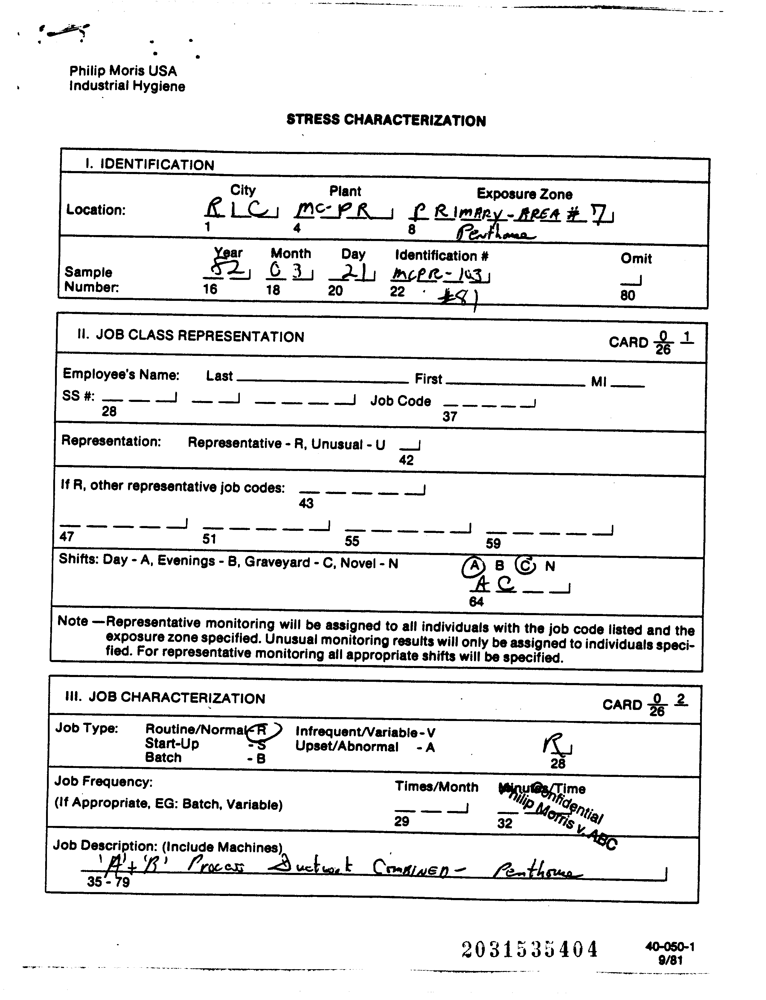 Philip Moris USA
Industrial Hygiene
STRESS CHARACTERIZATION
I. IDENTIFICATION
City Plant Exposure Zone
Location: RIC MC-PR PRIMARY - AREA # 7
1 4 8 Penthouse
Year Month Day Identification # Omit
Sample Number: 82 03 21 MCPR-103
16 18 20 22 #81 80
II. JOB CLASS REPRESENTATION CARD 0 1
26
Employee's Name: Last First MI
SS #: Job Code
28 37
Representation: Representative - R, Unusual - U
42
If R, other representative job codes:
43
47 51 55 59
Shifts: Day - A, Evenings - B, Graveyard - C, Novel - N A B C N
A C
64
Note — Representative monitoring will be assigned to all individuals with the job code listed and the
exposure zone specified. Unusual monitoring results will only be assigned to individuals speci-
fied. For representative monitoring all appropriate shifts will be specified.
III. JOB CHARACTERIZATION CARD 0 2
26
Job Type: Routine/Normal-R Infrequent/Variable-V R
Start-Up - S Upset/Abnormal - A 28
Batch - B
Job Frequency: Times/Month Minutes/Time
(If Appropriate, EG: Batch, Variable)
29 32
Confidential
Philip Morris v. ABC
Job Description: (Include Machines)
'A' + 'B' Process Ductwork COMBINED - Penthouse
35 - 79
2031535404 40-050-1
9/81